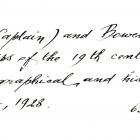 Captain) and Bowe
ps of the 19th cent
graphical and his
, 1928.
6